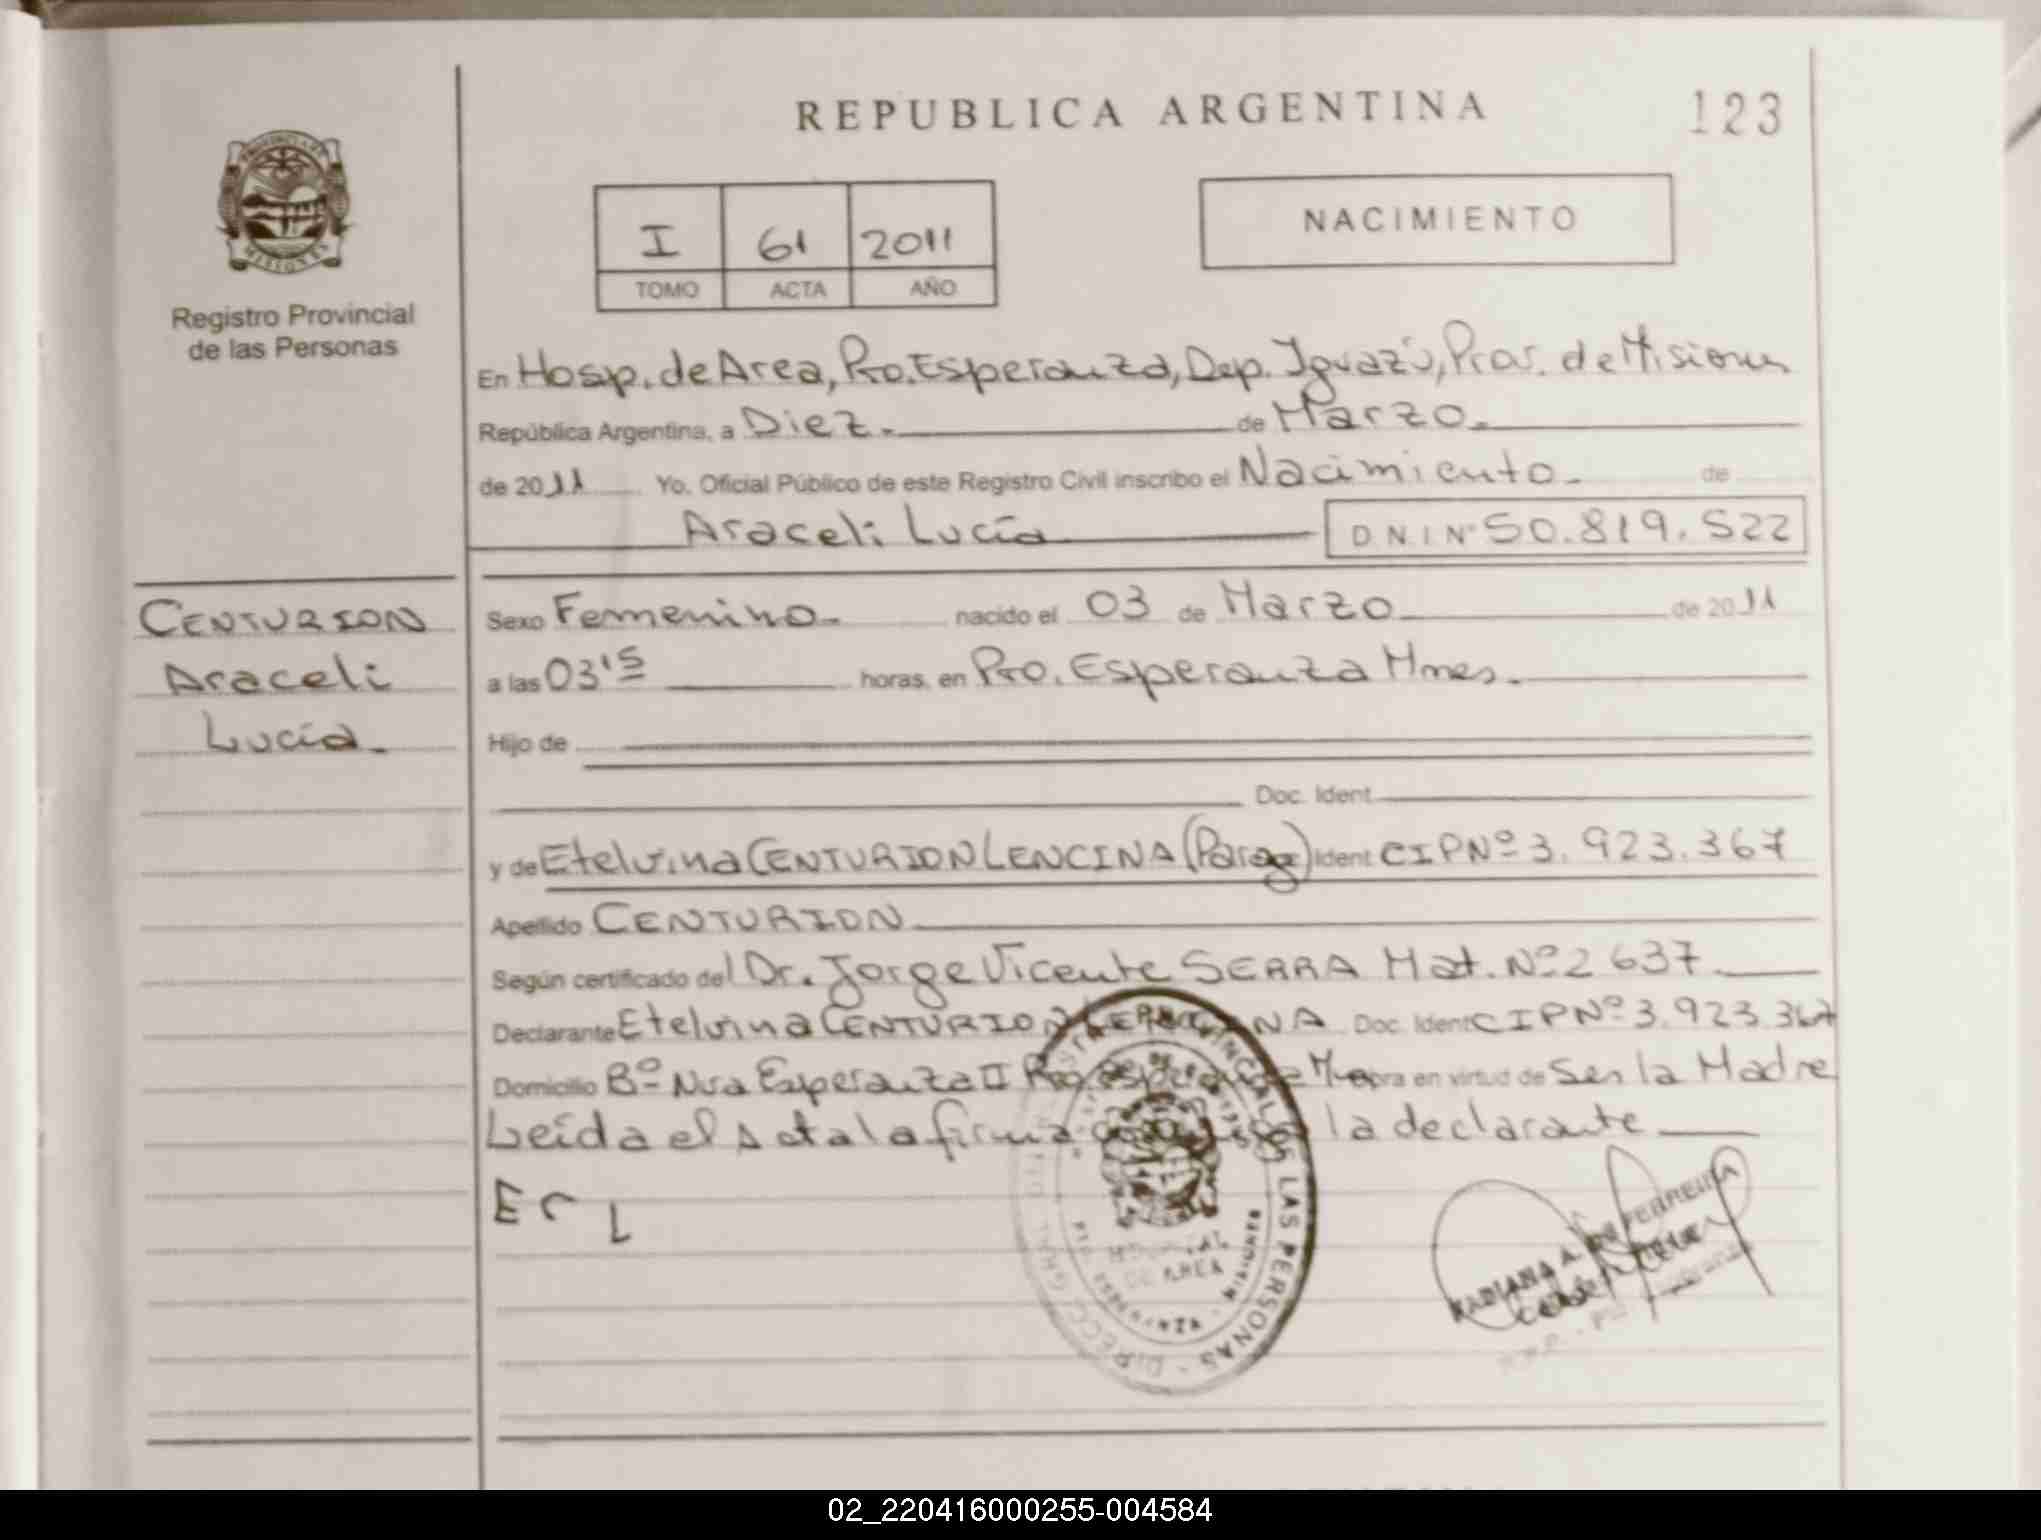 REPUBLICA ARGENTINA
123
I 61 2011
TOMO ACTA AÑO
NACIMIENTO
PROVINCIA DE
MISIONES
Registro Provincial
de las Personas
En Hosp. de Area, Pto. Esperanza, Dep. Iguazú, Prov. de Misiones
República Argentina, a Diez.- de Marzo.-
de 2011 Yo, Oficial Público de este Registro Civil inscribo el Nacimiento.- de
Araceli Lucía D N I Nº 50.819.522
CENTURION
Araceli
Lucía.-
Sexo Femenino.- nacido el 03 de Marzo de 2011
a las 03'5 horas, en Pto. Esperanza Mnes.-
Hijo de
Doc. Ident.
y de Etelvina CENTURION LENCINA (Parag) Ident CIPNº 3.923.367
Apellido CENTURION
Según certificado del Dr. Jorge Vicente SERRA Mat. Nº 2637
Declarante Etelvina CENTURION Doc. Ident CIPNº 3.923.367
Domicilio Bº Nva Esperanza II Pto. Esperanza obra en virtud de Ser la Madre
Leída el Acta la firma la declarante
E C L
PROVINCIAL DE LAS PERSONAS - DIRECC GRAL
HOSPITAL
DE AREA
MISIONES
FERREIRA
02_220416000255-004584